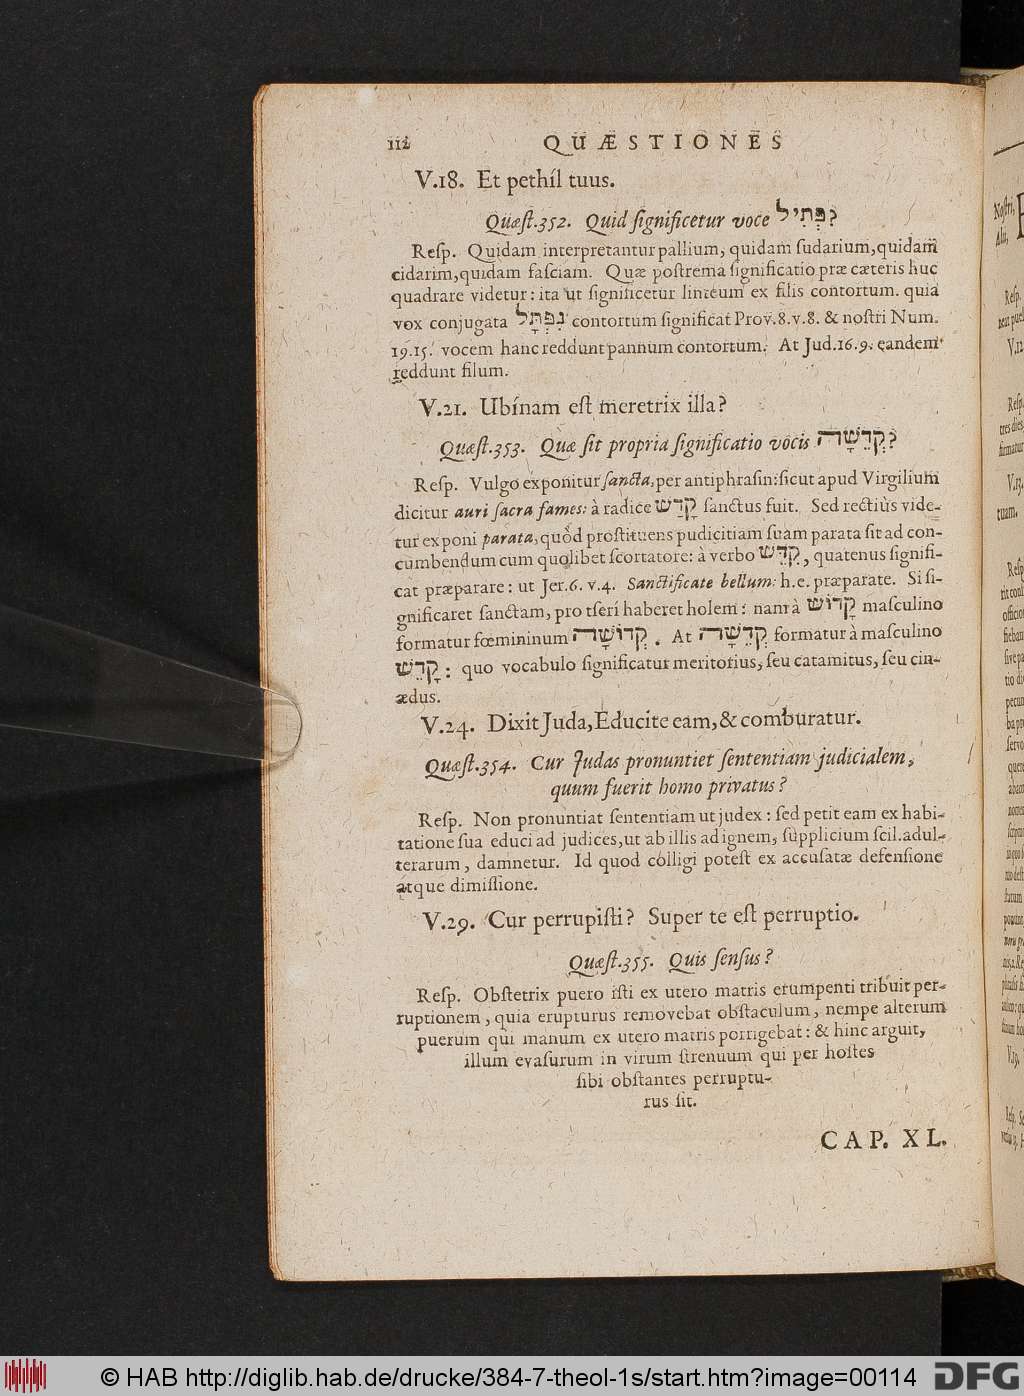 112 QUÆSTIONES
V.18. Et pethíl tuus.
Quæſt.352. Quid ſignificetur voce פְּתִיל?
Reſp. Quidam interpretantur pallium, quidam ſudarium, quidam
cidarim, quidam faſciam. Quæ poſtrema ſignificatio præ cæteris huc
quadrare videtur: ita ut ſignificetur linteum ex filis contortum. quia
vox conjugata נִפְתָּל contortum ſignificat Prov.8.v.8. & noſtri Num.
19.15. vocem hanc reddunt pannum contortum. At Jud.16.9. eandem
reddunt filum.
V.21. Ubínam eſt meretrix illa?
Quæſt.353. Quæ ſit propria ſignificatio vocis קְדֵשָׁה?
Reſp. Vulgo exponitur ſancta, per antiphraſin: ſicut apud Virgilium
dicitur auri ſacra fames: à radice קָדַשׁ ſanctus fuit. Sed rectiùs vide-
tur exponi parata, quòd proſtituens pudicitiam ſuam parata ſit ad con-
cumbendum cum quolibet ſcortatore: à verbo קִדֵּשׁ, quatenus ſignifi-
cat præparare: ut Jer.6.v.4. Sanctificate bellum: h.e. præparate. Si ſi-
gnificaret ſanctam, pro tſeri haberet holem: nam à קָדוֹשׁ maſculino
formatur fœmininum קְדוֹשָׁה. At קְדֵשָׁה formatur à maſculino
קָדֵשׁ: quo vocabulo ſignificatur meritorius, ſeu catamitus, ſeu cin-
ædus.
V.24. Dixit Juda, Educite eam, & comburatur.
Quæſt.354. Cur Judas pronuntiet ſententiam judicialem,
quum fuerit homo privatus?
Reſp. Non pronuntiat ſententiam ut judex: ſed petit eam ex habi-
tatione ſua educi ad judices, ut ab illis ad ignem, ſupplicium ſcil. adul-
terarum, damnetur. Id quod colligi poteſt ex accuſatæ defenſione
atque dimiſſione.
V.29. Cur perrupiſti? Super te eſt perruptio.
Quæſt.355. Quis ſenſus?
Reſp. Obſtetrix puero iſti ex utero matris erumpenti tribuit per-
ruptionem, quia erupturus removebat obſtaculum, nempe alterum
puerum qui manum ex utero matris porrigebat: & hinc arguit,
illum evaſurum in virum ſtrenuum qui per hoſtes
ſibi obſtantes perruptu-
rus ſit.
CAP. XL.
© HAB http://diglib.hab.de/drucke/384-7-theol-1s/start.htm?image=00114
DFG